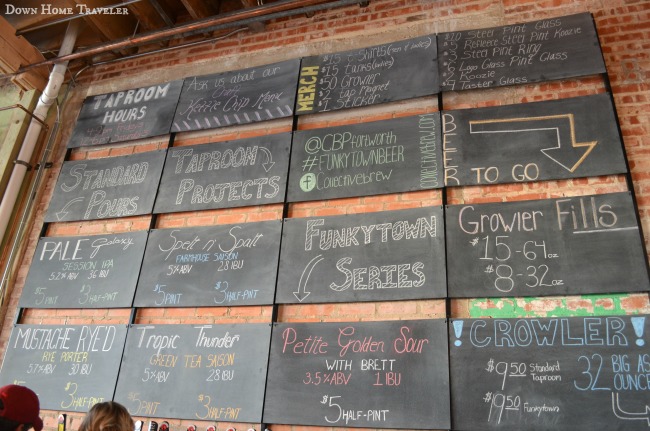 DOWN HOME TRAVELER
TAPROOM
HOURS
ASK US ABOUT OUR
MERCH
$50 GROWLER
$2 TAP MAGNET
$1 STICKER
$10 STEEL PINT GLASS
STEEL PINT RING
LOGO PINT GLASS
KOOZIE
TASTER GLASS
STANDARD
POURS
TAPROOM
PROJECTS
@CBPFORTWORTH
#FUNKYTOWNBEER
f COLLECTIVEBREW
BEER TO GO
PALE GALAXY
SESSION IPA
$5 PINT $3 HALF-PINT
SPELT N SPALT
FARMHOUSE SAISON
28 IBU
$5 PINT $3 HALF-PINT
FUNKYTOWN
SERIES
GROWLER FILLS
$15-64oz
$8-32oz
MUSTACHE RYED
RYE PORTER
$5 PINT $3 HALF-PINT
TROPIC THUNDER
GREEN TEA SAISON
5%ABV 28 IBU
$5 PINT $3 HALF-PINT
PETITE GOLDEN SOUR
WITH BRETT
3.5%ABV 1 IBU
$5 HALF-PINT
!CROWLER!
$9.50 STANDARD TAPROOM
$9.50 FUNKYTOWN
32 BIG ASS OUNCES